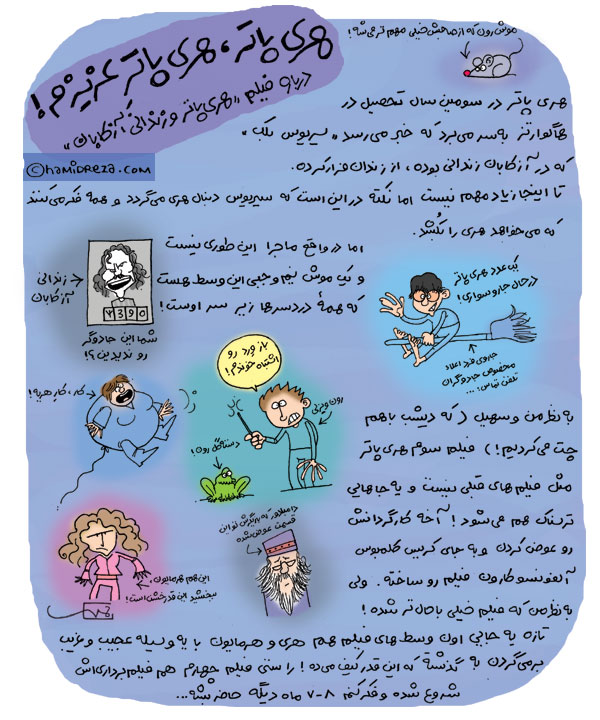 هری پاتر، هری پاتر عزیزم!
درباره فیلم «هری پاتر و زندانی آزکابان»
©hamidreza.com
موش رون که از صاحبش خیلی مهم تر می شه!
هری پاتر در سومین سال تحصیل در
هاگوارتز به سر می برد که خبر می رسد «سیریوس بلک»
که در آزکابان زندانی بوده، از زندان فرار کرده.
تا اینجا زیاد مهم نیست اما نکته در این است که سیریوس دنبال هری می گردد و همه فکر می کنند
که می خواهد هری را بکُشد.
اما در واقع ماجرا این طوری نیست
و یک موش نیم وجبی این وسط هست
که همهٔ دردسرها زیر سر اوست!
زندانی
آزکابان
۷۳۹۰
شما این جادوگر
رو ندیدین؟!
یک عدد هری پاتر
در حال جارو سواری!
جاروی فرد اعلاء
مخصوص جادوگران
تلفن تماس: ...
کار، کار هریه!
باز ورد رو
اشتباه خوندم!
رون ویزلی
دستگل رون!
به نظر من و سهیل (که دیشب با هم
چت می کردیم!) فیلم سوم هری پاتر
مثل فیلم های قبلی نیست و یه جاهایی
ترسناک هم می شود! آخه کارگردانش
رو عوض کردن و به جای کریس کلمبوس
آلفونسو کارون فیلم رو ساخته. ولی
به نظر من که فیلم خیلی باحال تر شده!
دامبلدور که بازیگرش تو این
قسمت عوض شده
این هم هرمایون!
ببخشید این قدر خشن است!
تازه یه جایی اون وسط های فیلم هم هری و هرمایون با یه وسیله عجیب و غریب
برمی گردن به گذشته که این قدر کیف می ده! راستی فیلم چهارم هم فیلمبرداری اش
شروع شده و فکر کنم ۷-۸ ماه دیگه حاضر بشه...